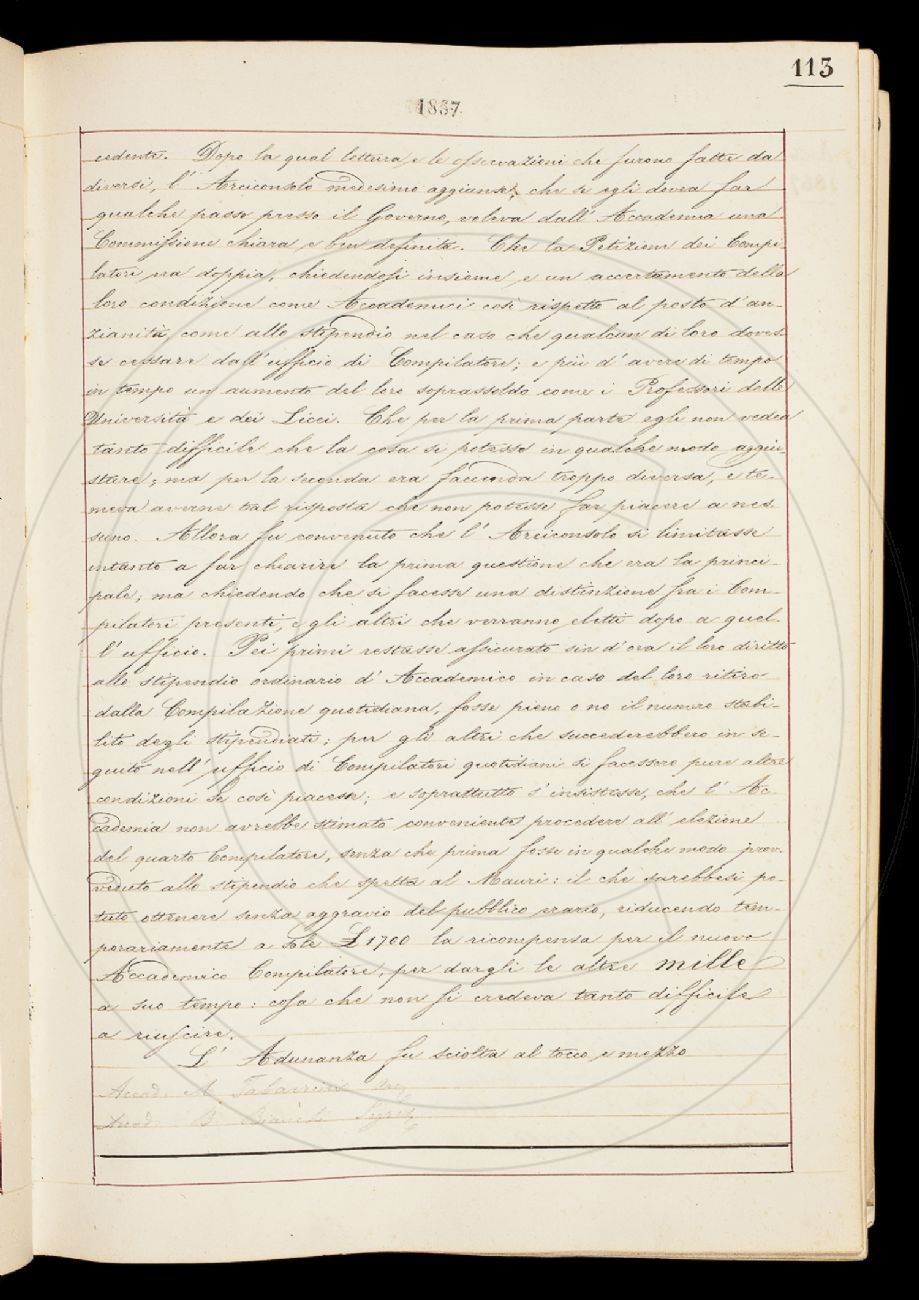 113
1867
cedente. Dopo la qual lettura e le osservazioni che furono fatte da
diversi, l' Arciconsolo medesimo aggiunse, che se egli dovea far
qualche passo presso il Governo, voleva dall' Accademia una
Commissione chiara e ben definita. Che la Petizione dei Compi
latori era doppia, chiedendosi insieme, e un accertamento della
loro condizione come Accademici così rispetto al posto d' an-
zianità, come allo stipendio nel caso che qualcun di loro doves-
se cessare dall' ufficio di Compilatore; e più d' avere di tempo
in tempo un aumento del loro soprassoldo come i Professori delle
Università e dei Licei. Che per la prima parte egli non vedea
tanto difficile che la cosa si potesse in qualche modo aggiu-
stare; ma per la seconda era faccenda troppo diversa, e te-
meva averne tal risposta che non potesse far piacere a nes-
suno. Allora fu convenuto che l' Arciconsolo si limitasse
intanto a far chiarire la prima questione che era la princi-
pale; ma chiedendo che si facesse una distinzione fra i Com-
pilatori presenti, e gli altri che verranno eletti dopo a quel-
l' ufficio. Pei primi restasse assicurato sin d' ora il loro diritto
allo stipendio ordinario d' Accademico in caso del loro ritiro
dalla Compilazione quotidiana, fosse pieno o no il numero stabi-
lito degli stipendiati; per gli altri che succederebbero in se-
guito nell' ufficio di Compilatori quotidiani si facessero pure altre
condizioni se così piacesse; e soprattutto s' insistesse, che l' Ac-
cademia non avrebbe stimato conveniente procedere all' elezione
del quarto Compilatore, senza che prima fosse in qualche modo prov-
veduto allo stipendio che spetta al Mauri: il che sarebbesi po-
tuto ottenere senza aggravio del pubblico erario, riducendo tem-
porariamente a sole £ 1700 la ricompensa per il nuovo
Accademico Compilatore, per dargli le altre mille
a suo tempo: cosa che non si credeva tanto difficile
a riuscire.
L' Adunanza fu sciolta al tocco e mezzo
Accad. M. Tabarrini
Accad. B. Bianchi Segret.